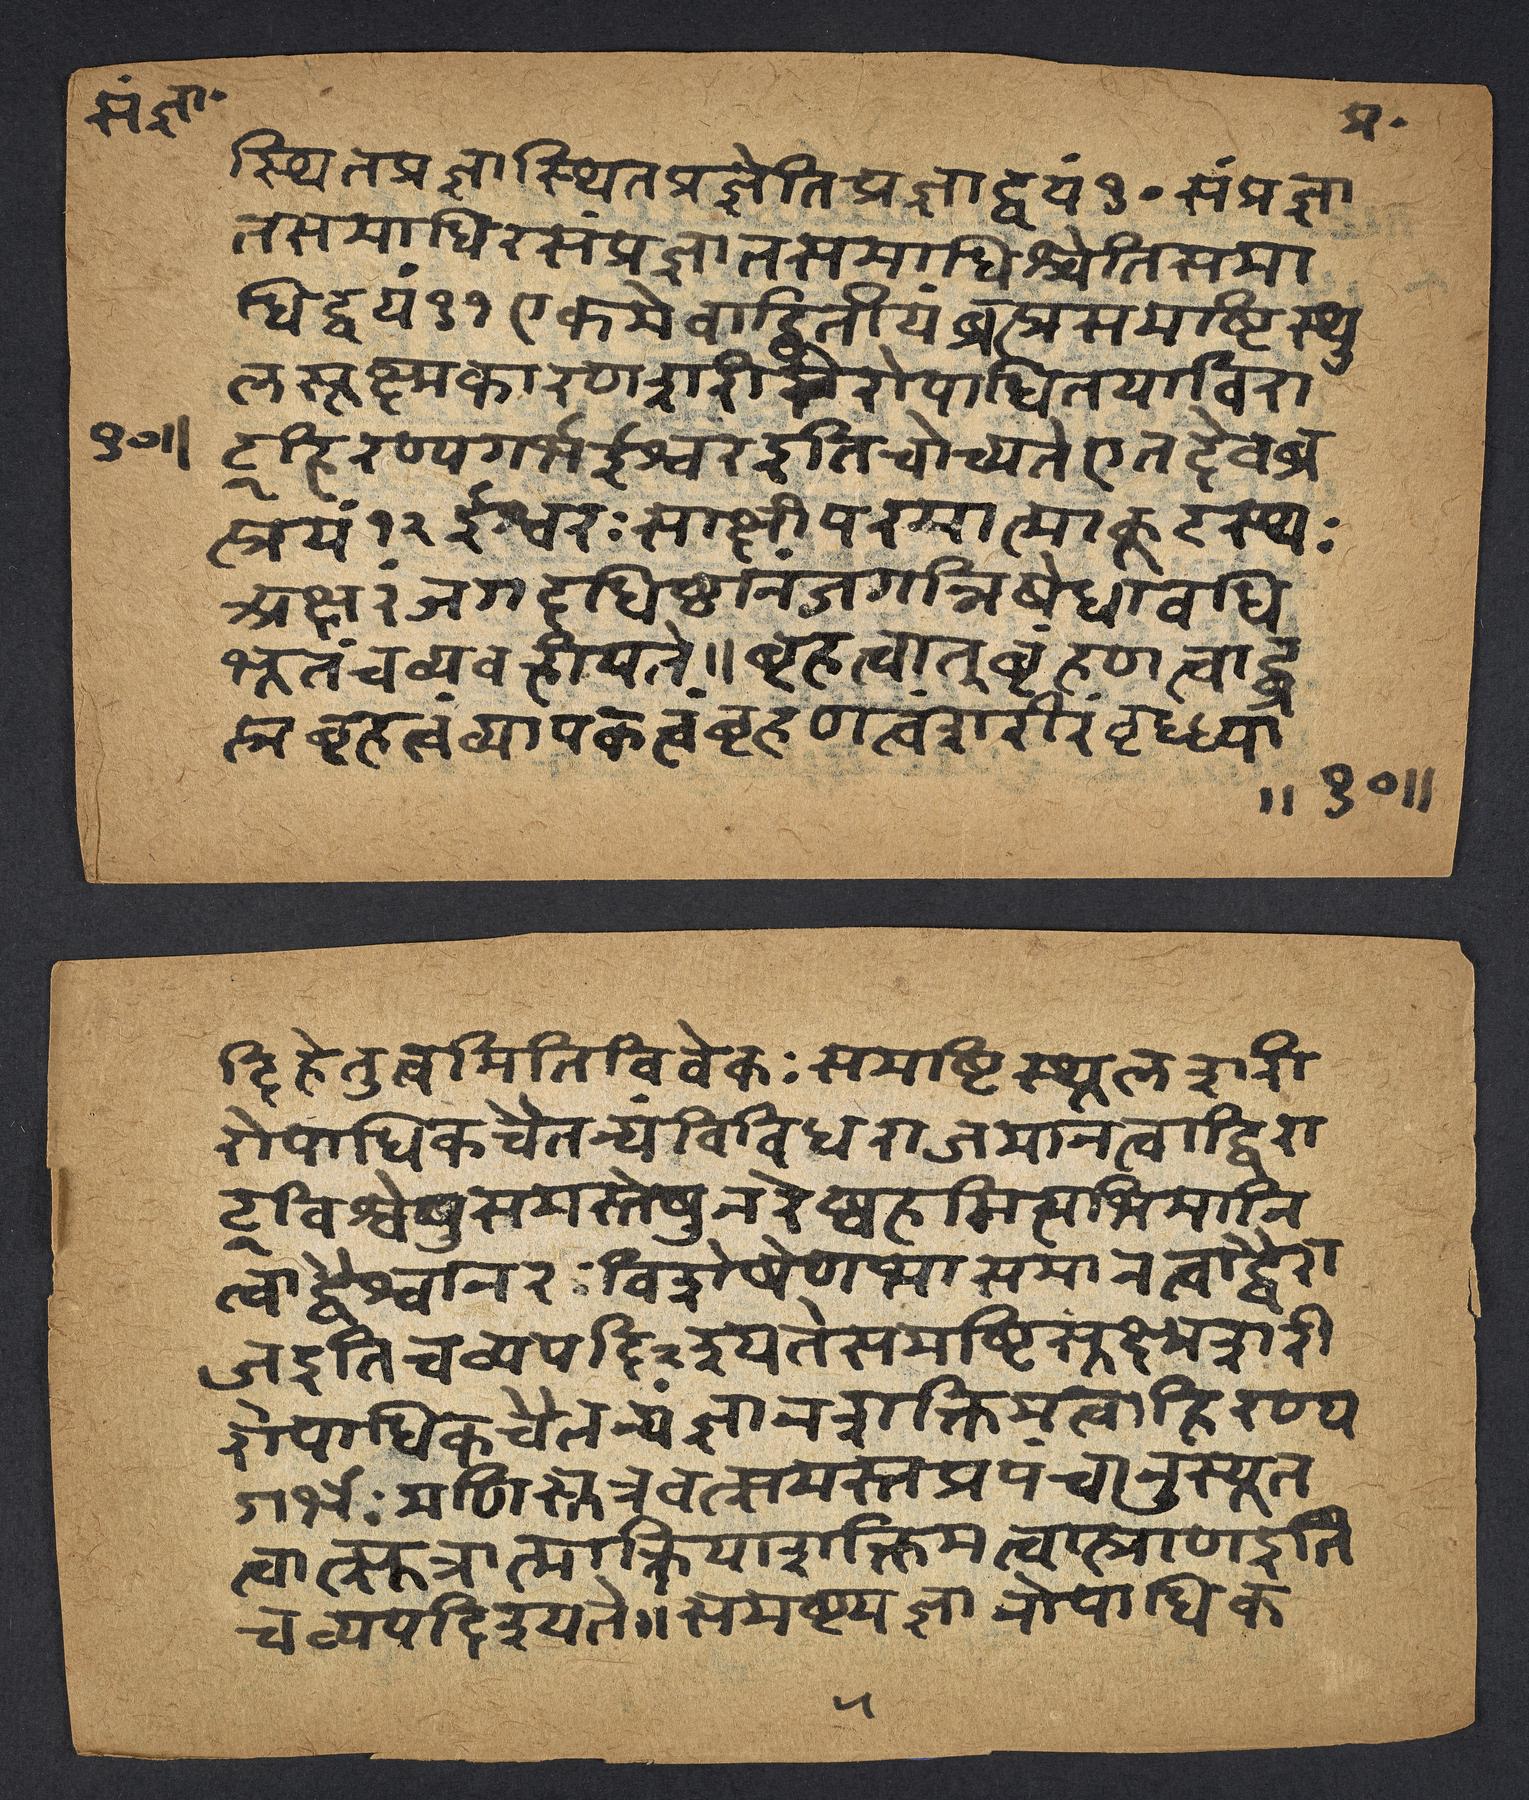 संज्ञा॰
प्र॰
स्थितप्रज्ञास्थितप्रज्ञेतिप्रज्ञाद्वयं१०संप्रज्ञा
तसमाधिरसंप्रज्ञातसमाधिश्चेतिसमा
धिद्वयं११एकमेवाद्वितीयंब्रह्मसमष्टिस्थु
लसूक्ष्मकारणशरीरोपाधितयाविरा
१०॥
ट्हिरण्यगर्भईश्वरइतिचोच्यतेएतद्देवब्र
ह्मत्रयं१२ईश्वरःसाक्षीपरमात्माकूटस्थः
अक्षरंजगदधिष्ठानंजगन्निषेधावधि
भूतंचव्यवह्रीयते॥बृहत्वात्बृंहणत्वाद्ब्र
ह्मबृहत्वंव्यापकत्वंबृहणत्वंशरीरंवृध्ध्या
॥१०॥
दिहेतुत्वमितिविवेकः समष्टिस्थूलशरी
रोपाधिकचैतन्यंविविधराजमानत्वाद्विरा
ट्विश्वेषुसमस्तेषुनरेष्वहमित्यभिमानि
त्वाद्वैश्वानरःविशेषेणभासमानत्वाद्वैरा
जइतिचव्यपदिश्यतेसमष्टिसूक्ष्मशरी
रोपाधिकचैतन्यंज्ञानशक्तिमत्वाहिरण्य
गर्भःमणिसूत्रवत्समस्तप्रपंचानुस्यूत
त्वात्सूत्रात्माक्रियाशक्तिमत्वात्प्राणइति
चव्यपदिश्यते॥समष्ट्यज्ञानोपाधिक